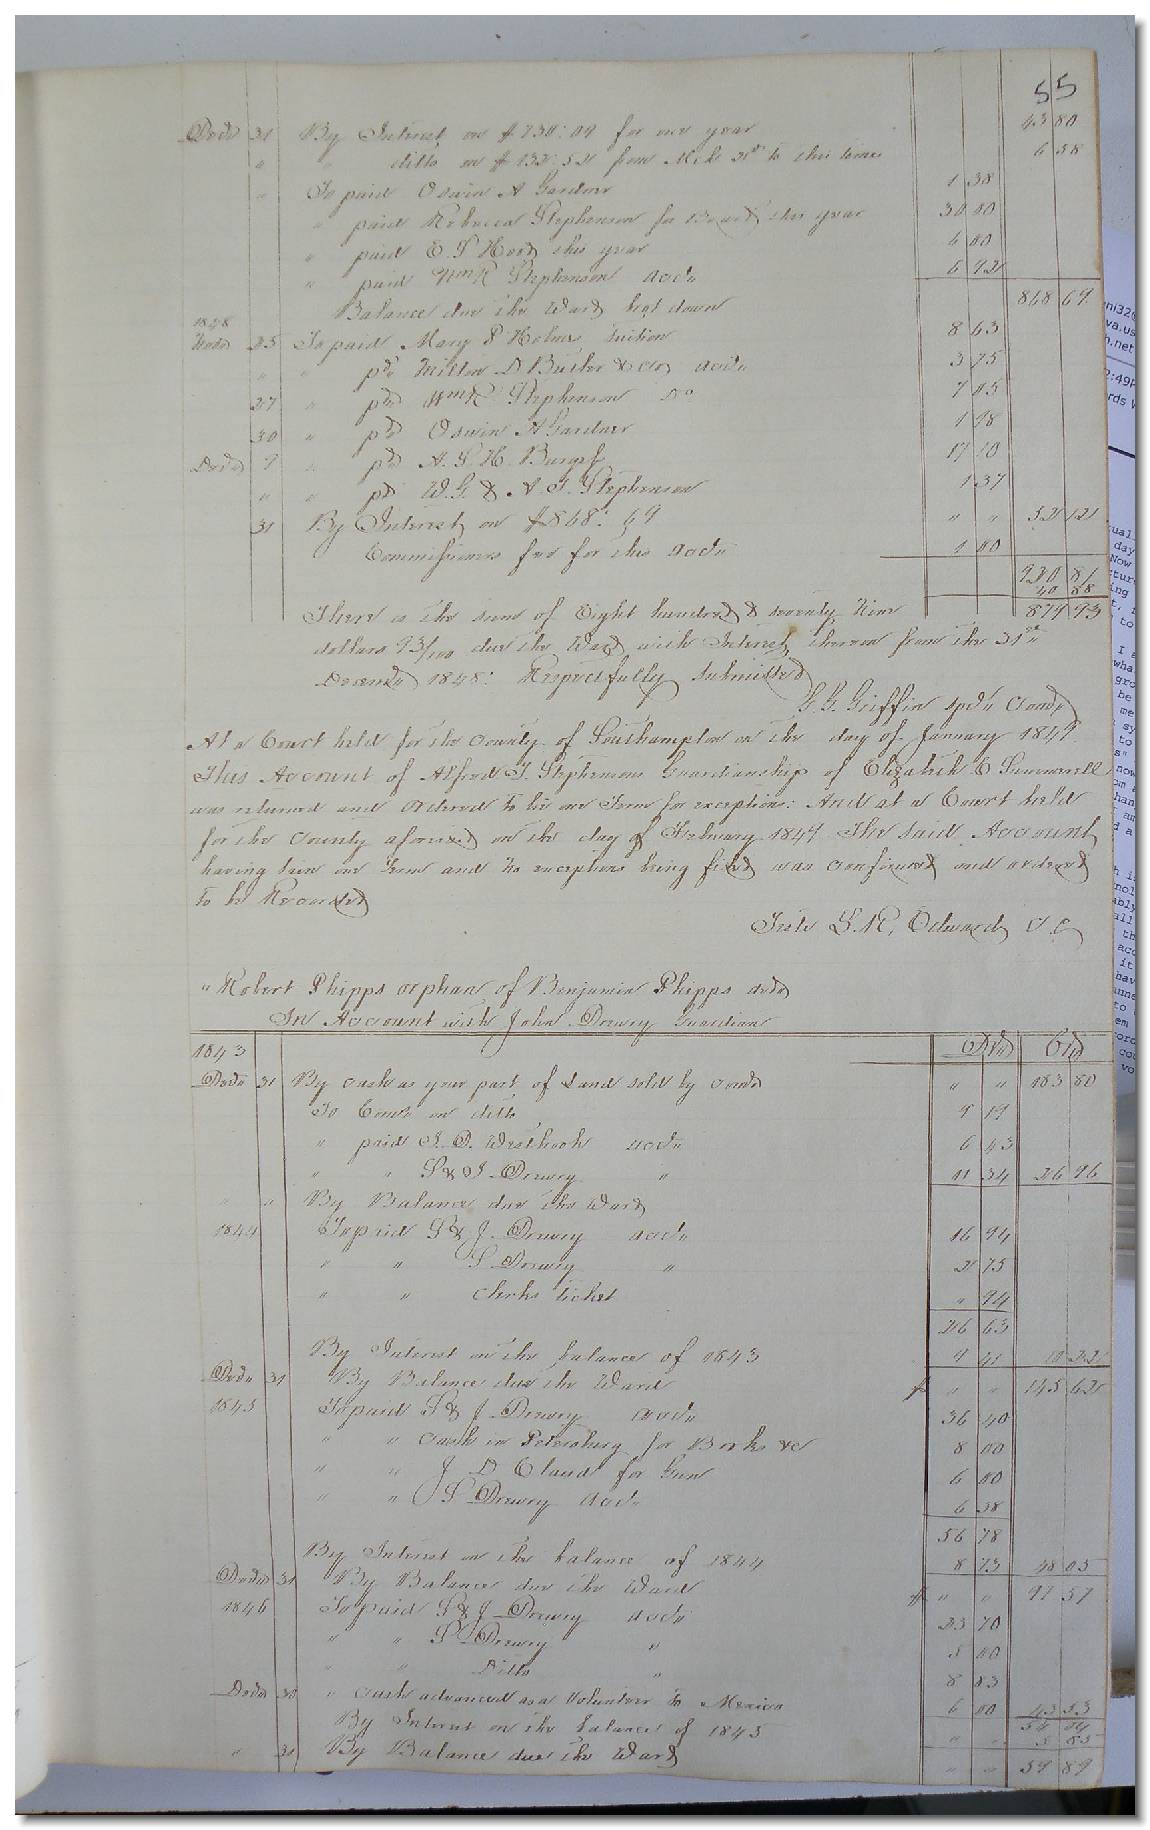 55
Decr 31 By Interest on $730:09 for one year 43 80
" ditto on $132:52 from to this time 6 58
" To paid Oswin A Gardner 1 38
" paid Rebecca Stephenson for Board this year 30 00
" paid E. S. this year 6 00
" paid Wm R Stephenson accot 6 92
Balance due the Ward brot down 868 69
1848
25 To paid Mary P Holmes tuition 8 63
" " pd D Butler & Co accot 3 75
27 " pd Wm R Stephenson Do 7 05
30 " pd Oswin A Gardner 1 98
Decr 9 " pd A. S. H. Burgess 17 10
" " pd W. G. & A. J. Stephenson 1 37
31 By Interest on $868:69 " " 52 12
Commissioners fee for this accot 1 00
920 81
40 88
879 93
There is the sum of Eight hundred & seventy Nine
dollars 93/100 due the Ward with Interest thereon from the 31st
Decemr 1848: Respectfully Submitted
G. G. Griffin Comr
At a Court held for the County of Southampton on the day of January 1849
This Account of Alfred J. Stephensons Guardianship of Elizabeth E Summerell
was returned and Ordered to lie one Term for exceptions: And at a Court held
for the County aforesaid on the day of February 1849 The said Account
having lain one Term and no exceptions being filed was confirmed and ordered
to be Recorded
Teste L. R. Edwards C C
" Robert Phipps orphan of Benjamin Phipps decd
In Account with John Drewry Guardian
1843 Dr Cr
Decr 31 By cash as your part of Land sold by Comr " " 183 80
To Comr on ditto 9 19
" paid J. D. Westbrook accot 6 43
" " S & J Drewry " 11 34 26 96
" " By Balance due the Ward
1844 To paid S & J. Drewry accot 16 94
" " S Drewry " 2 75
" " clerks ticket " 94
26 63
By Interest on the balance of 1843 9 41 11 22
Decr 31 By Balance due the Ward $ " " 145 62
1845 To paid S & J Drewry accot 36 40
" " cash in Petersburg for Books &c 8 00
" " J D Claud for Gun 6 00
" " S Drewry accot 6 38
56 78
By Interest on the balance of 1844 8 73 48 05
Decr 31 By Balance due the Ward $ " " 97 57
1846 To paid S & J Drewry accot 23 70
" " S Drewry " 5 00
" " Ditto " 8 83
Decr 30 " cash advanced as a Volunteer to Mexico 6 00 43 53
By Interest on the balance of 1845 54 04
" " 5 85
" 31 By Balance due the Ward " " 59 89